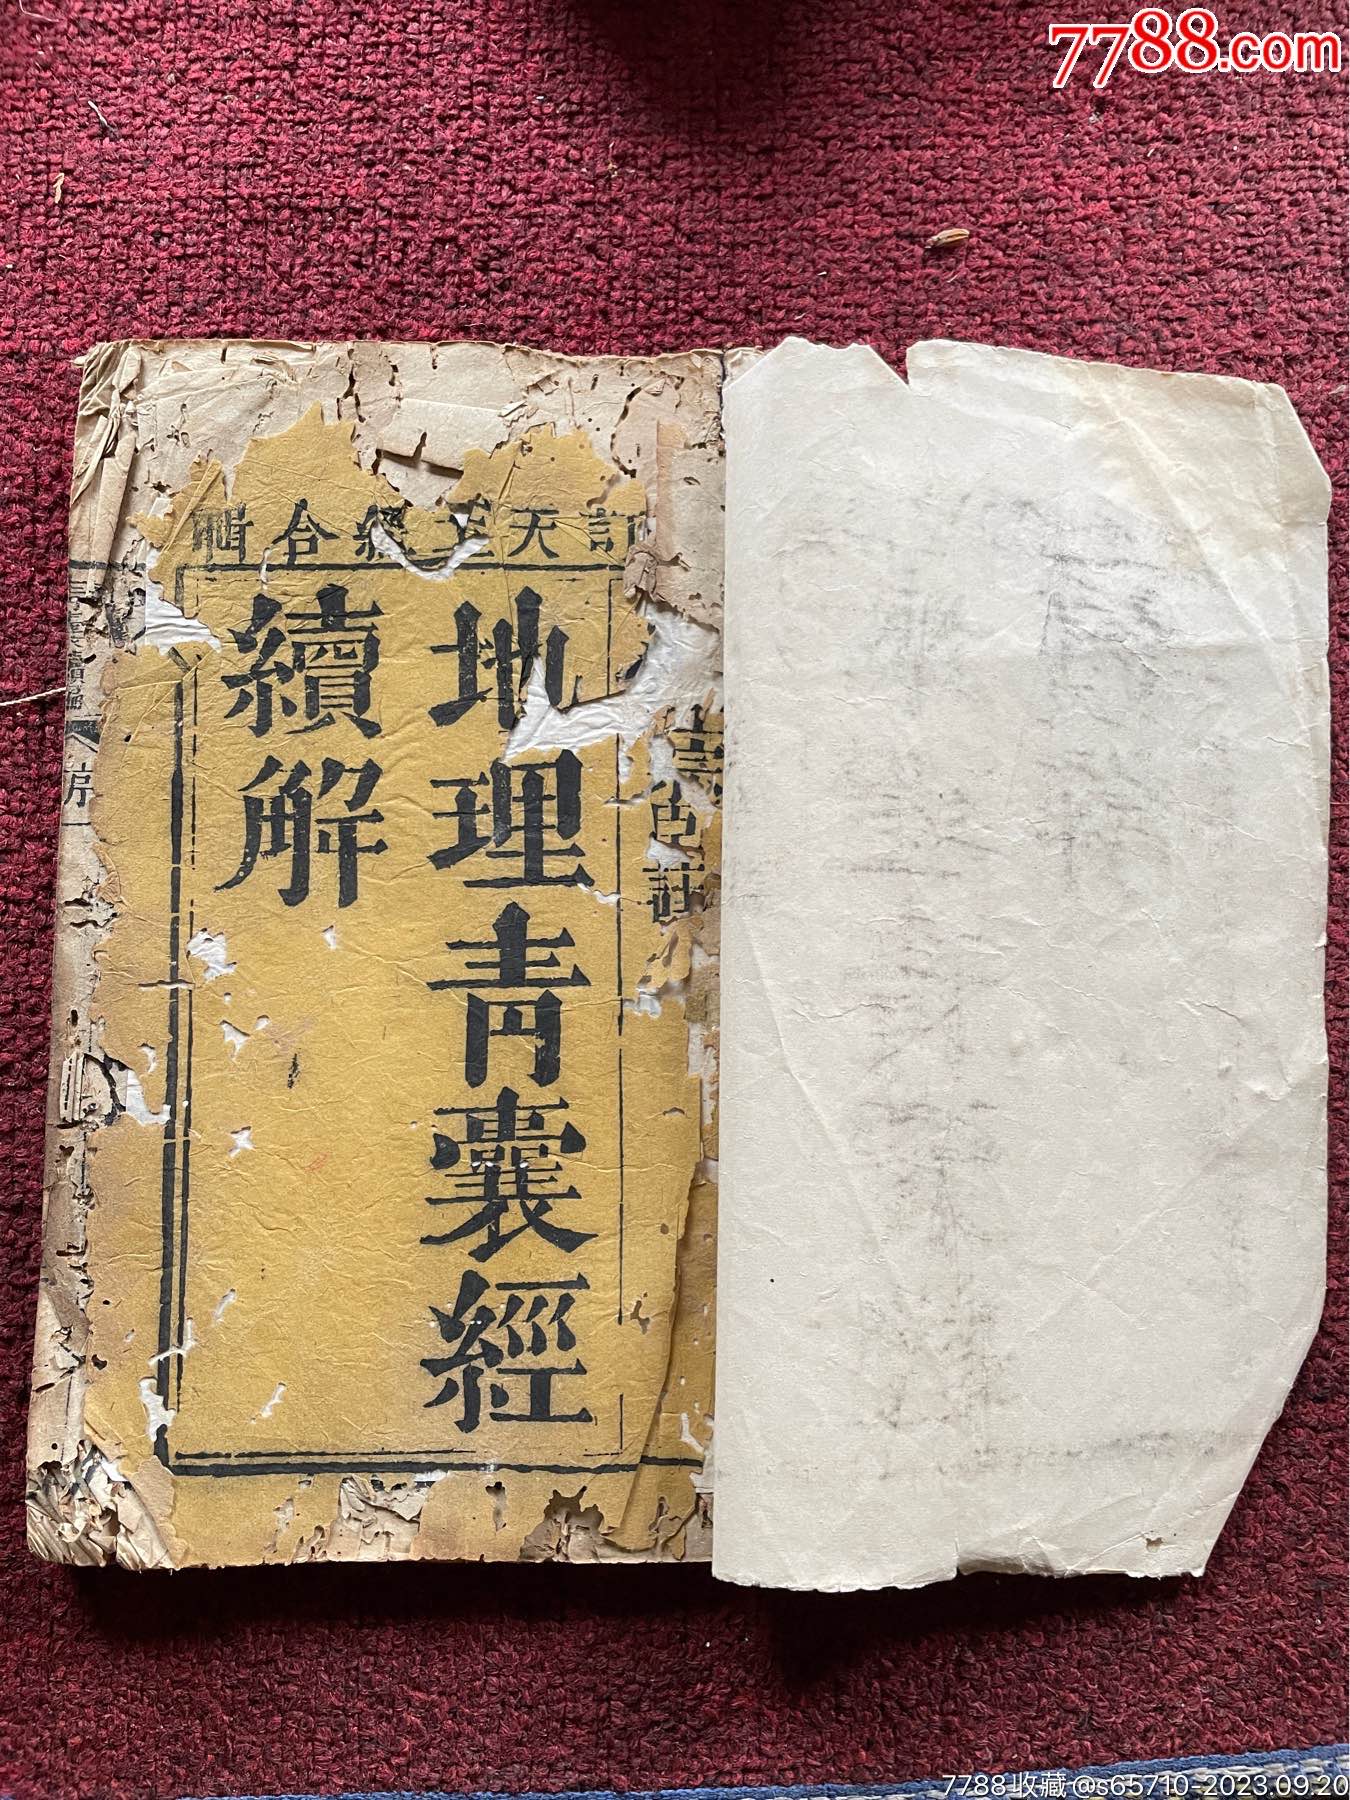 7788.com
訂天玉經合輯
註
地理青囊經
續解
序
7788收藏@s65710-2023.09.20